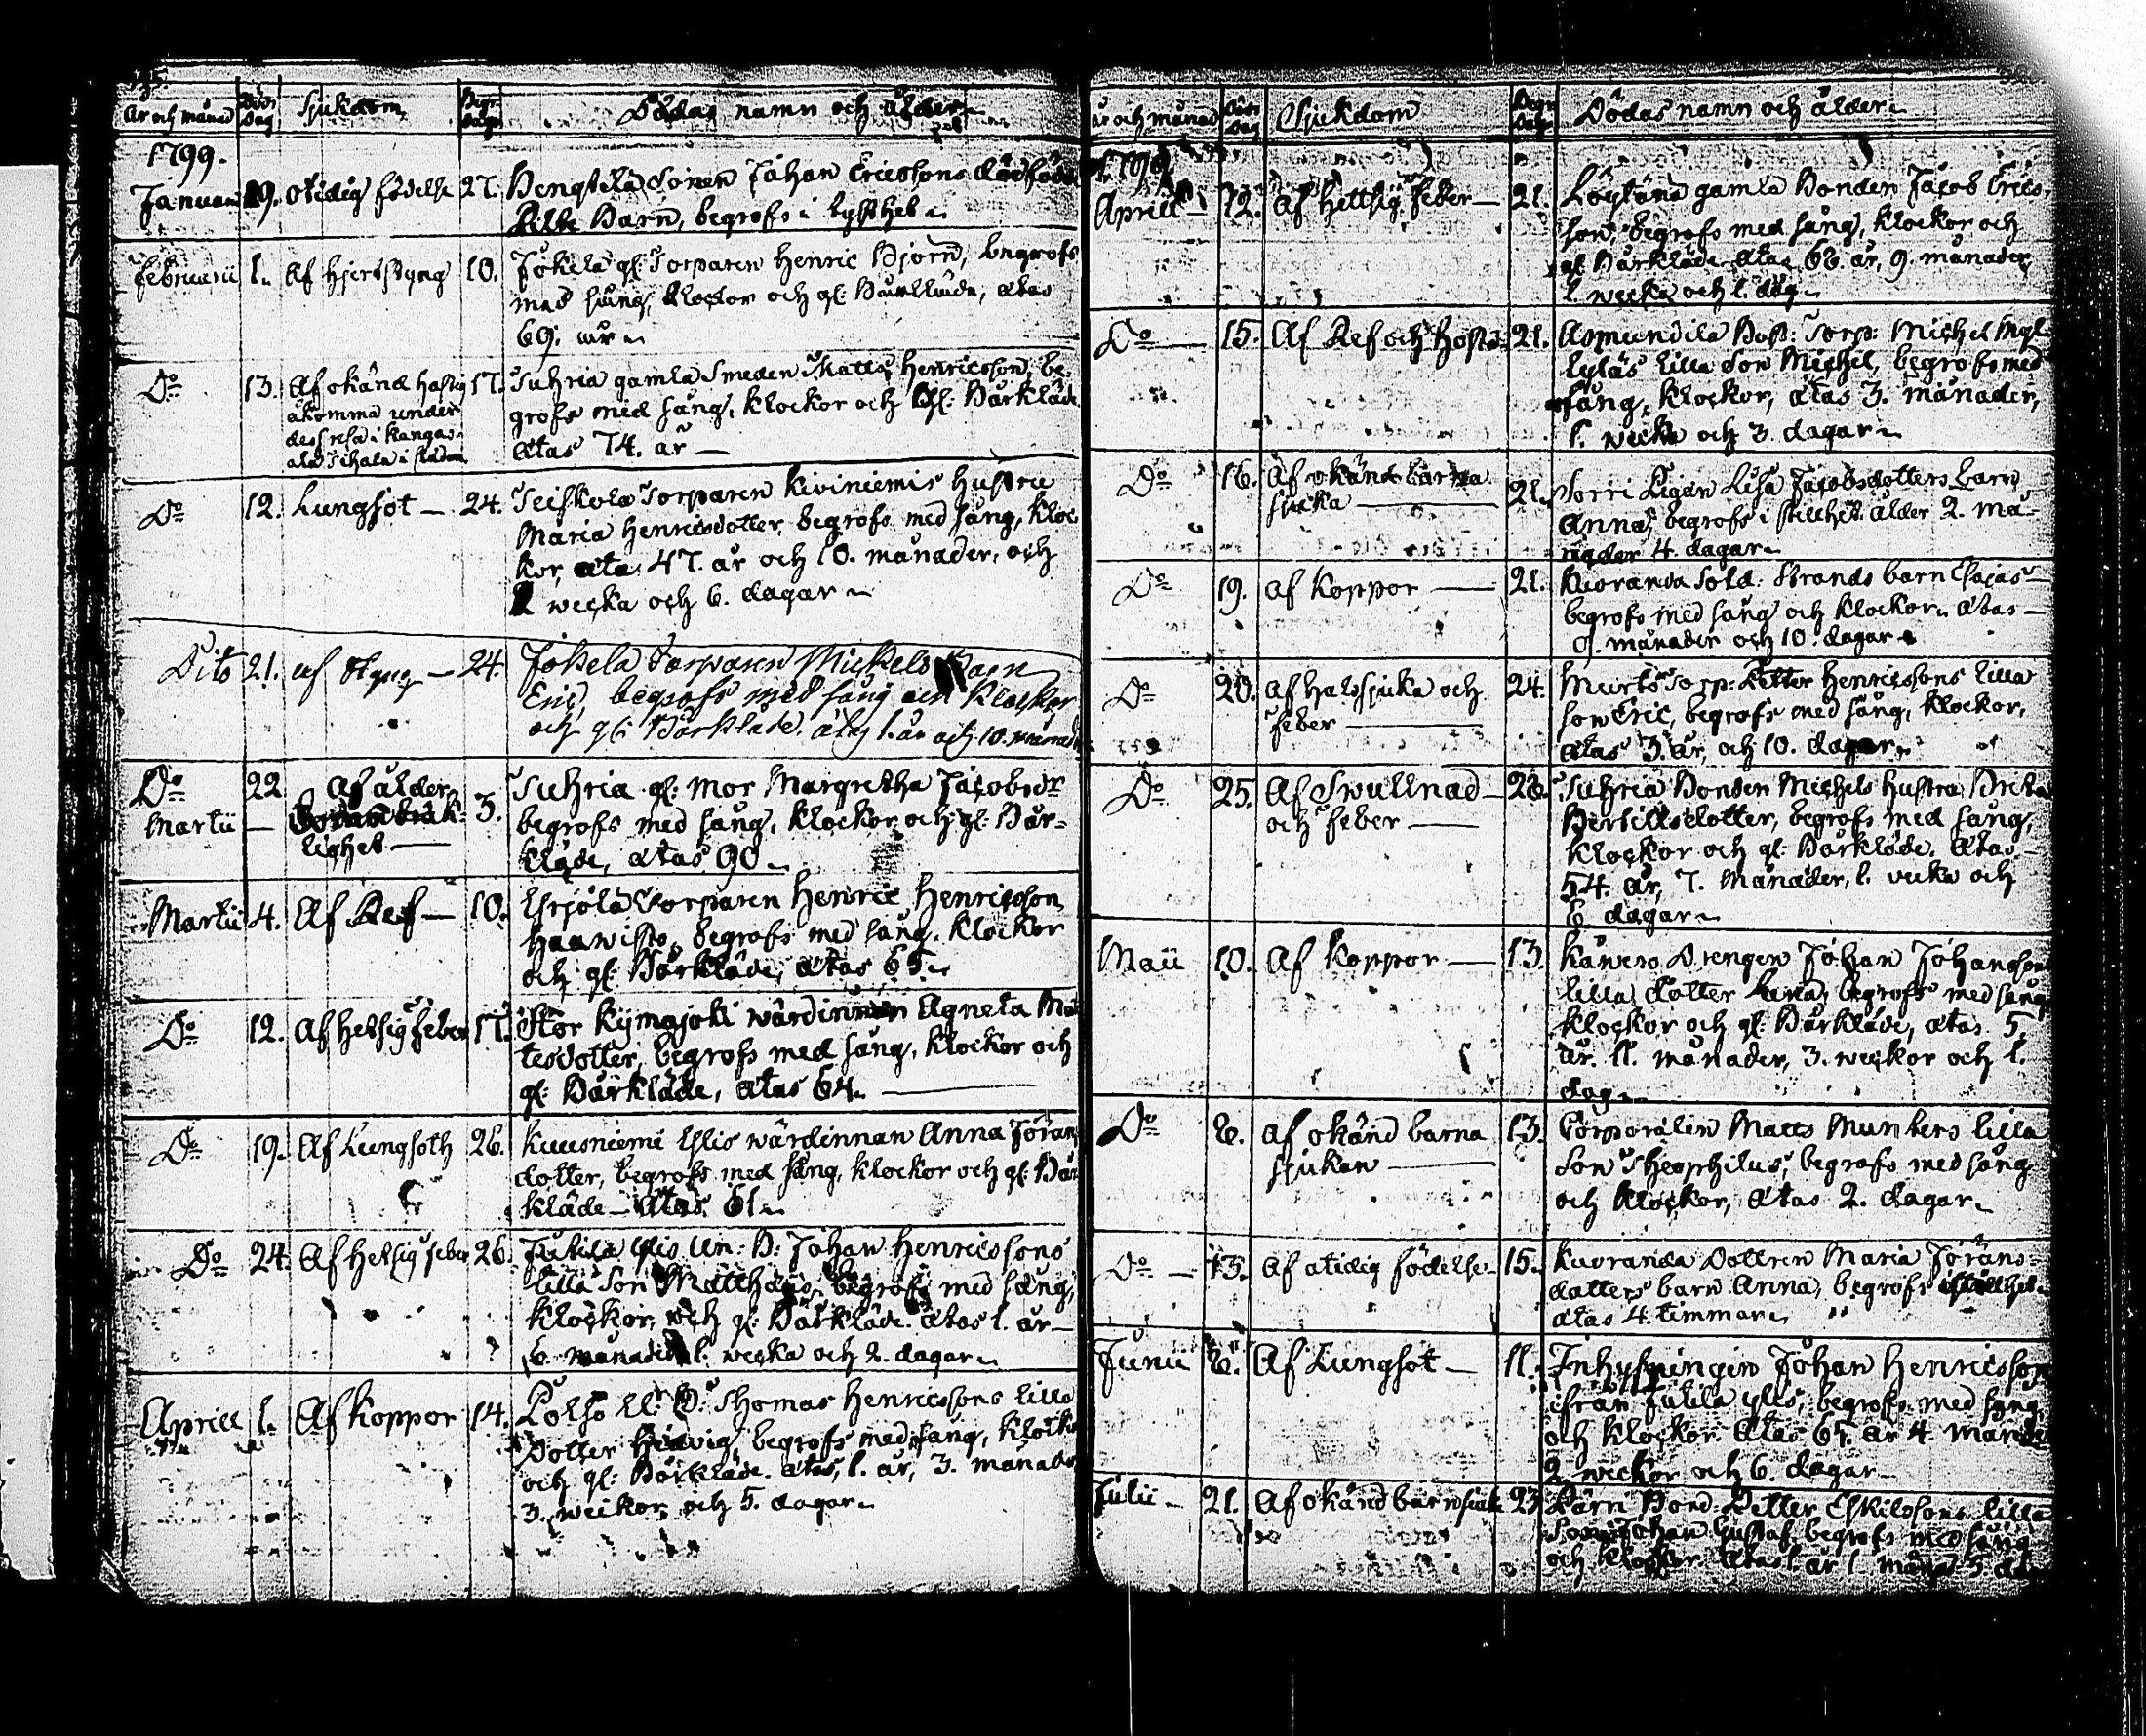 År och månad Döds dag Sjukdom Begr. dag Dödas namn och ålder
1799.
Januari 19. otidig födelse 27. Hengstela Sonen Johan Ericssons dödfödda
lilla Barn, begrofs i tysthet
Februarii 1. Af Hjertstyng 10. Jokela gl: Torparen Henric Björn, begrofs
med sång, klockor och gl: Bårkläde, ätas
69. år
Do 13. Af okänd hastig 17. Suhria gamla Smeden Matts Henricsson, be-
åkomma under
grofs med sång, klockor och gl: Bårkläde
dess resa i Kangas-
ätas 74. år
ala
Do 12. Lungsot 24. Seiskola Torparen Kiviniemis Hustru
Maria Henricsdotter, begrofs med sång, kloc
kor, äta 47. år och 10. månader, och
wecka och 6. dagar
Dito 21. af Styng 24. Jokela Torparen Mickels Barn
Eric, begrofs med sång och Klockor
och gl: Bårkläde. ätas 1. år och 10. månad
Do 22 Af ålder
Martii 3. Suhria gl: Mor Margretha Jacobsdr
begrofs med sång, klockor och gl: Bår-
lighet
kläde, ätas 90
Martii 4. Af Ref 10. Torparen Henric Henricsson
Haawisto, begrofs med sång, klockor
och gl: Bårkläde, ätas 65.
Do 12. Af Hetsig feber 17. Stor Kijmajoki wärdinnan Agneta Mat
tesdotter, begrofs med sång, klockor och
gl: Bårkläde, ätas 64.
Do 19. Af Lungsoth 26. Kuusniemi Ylis wärdinnan Anna Jöran
dotter, begrofs med sång, klockor och gl: Bår
kläde ätas 61
Do 24. Af Hetsig feber 26. Jutila Ylis Un: B: Johan Henricssons
lilla Son Matthæus, begrofs med sång,
klockor, och gl: Bårkläde. ätas 1. år
6. månader 1. wecka och 2. dagar
Aprill 1. Af Koppor 14. Polso Thomas Henricssons lilla
Dotter Hedvig, begrofs med sång, klockor
och gl: Bårkläde. ätas, 1. år, 3. månader
3. weckor och 5. dagar
År och månad Döds dag Sjukdom Begr dag Dödas namn och ålder
1799
Aprill 12. af Hettsig feber 21. Löytänä gamla Bonden Jacob Erics-
son, begrofs med sång, klockor och
gl: Bårkläde ätas 66. år, 9. månader
1. wecka och 1. dag
Do 15. Af Ref och hosta 21. Asmundila Torp: Michel
lilla Son Michel, begrofs med
sång, klockor, ätas 3. månader,
1. wecka och 3. dagar
Do 16. af okänd barna
sjuka 21. Sorri Pigan Lisa Jacobsdotters barn
Anna, begrofs i stillhet. ålder 2. må-
nader 4. dagar
Do 19. af Koppor 21. Kuoranda Sold: Strands barn Esajas
begrofs med sång och klockor. ätas
9. månader och 10. dagar
Do 20. af halssjuka och 24. Murto Torp: Petter Henricssons lilla
feber
son Eric, begrofs med sång, klockor,
ätas 3. år, och 10. dagar
Do 25. Af Swullnad 28. Suhria Bonden Michels Hustru Brita
och feber
Bertillsdotter, begrofs med sång,
klockor och gl: Bårkläde. ätas
54. år, 7. Månader, 1. vecka och
6 dagar
Maii 10. af Koppor 13. Kanero Drengen Johan Johansson
lilla dotter Lena, begrofs med sång
klockor och gl: Bårkläde, ätas 5.
år. 11. månader, 3. weckor och 1.
dag
Do 6. af okänd barna 13. Corporalen Matts Munbers lilla
sjukan
Son Theophilus, begrofs med sång
och klockor, ätas 2. dagar
Do 13. af otidig födelse 15. Kuoranda Dottren Maria Jörans-
dotters barn Anna, begrofs i stillhet
ätas 4 timmar
Junii 6. Af Lungsot 11. Inhysningen Johan Henricsson
ifrån Jutila ylis, begrofs med sång
och klockor. ätas 65. år 4. månader
2 weckor och 6. dagar
Julii 21. Af okänd barnsjuka 23 Pärri Bond: Petter Eskilssons lilla
Son Johan Gustaf begrofs med sång
och klockor. ätas 1. år 1. månad 3